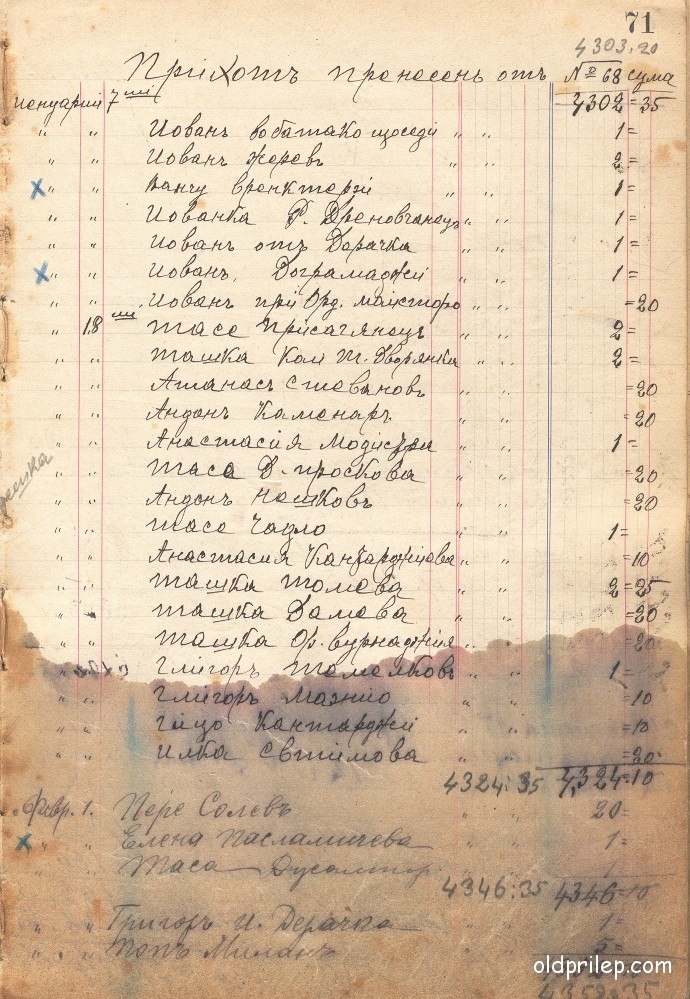 71
4303.20
Прiхотъ пренесенъ отъ № 68 сума
иенуарий 7 мй 4302=35
" " Иованъ " " 1=
" " Иованъ жеревъ " " 2=
х " " Ванчу " " 1=
" " Иованка Р. Дреновчанецъ " " 1=
" " Иованъ отъ Дерачка " " 1=
х " " Иованъ Дограмаджи " " 1=
" " Иованъ при Орд. маисторо " " =20
" 18 ми Тасе присагянецъ " " 2=
" " Ташка Кам Т. Дворянка " " 2=
" " Атанасъ Стевановъ " " =20
" " Андонъ Каменаръ " " =20
" " Анастасия Модистра " " 1=
" " Таса Д. проскова " " =20
" " Андонъ Нешковъ " " =20
" " Тасе Чадло " " 1=
" " Анастасия Кантарджиева " " =10
" " Ташка Толева " " 2=25
" " Ташка Дамева " " =20
" " Ташка Ор. вурнаджия " " =20
" " Глигоръ Темелковъ " " 1=
" " Глигоръ " " =10
" " Гицо Кантарджи " " =10
" " Илка Евтимова " " =20
4324:35 4,324=10
Февр. 1. Пере Солевъ " " 20=
х " " Елена Пасламичева " " 1=
" " Таса " " 1
4346:35 4346=10
" " Григоръ И. Дерачка " " 1=
" " Попъ Миланъ " " 5=
4352:35
oldprilep.com